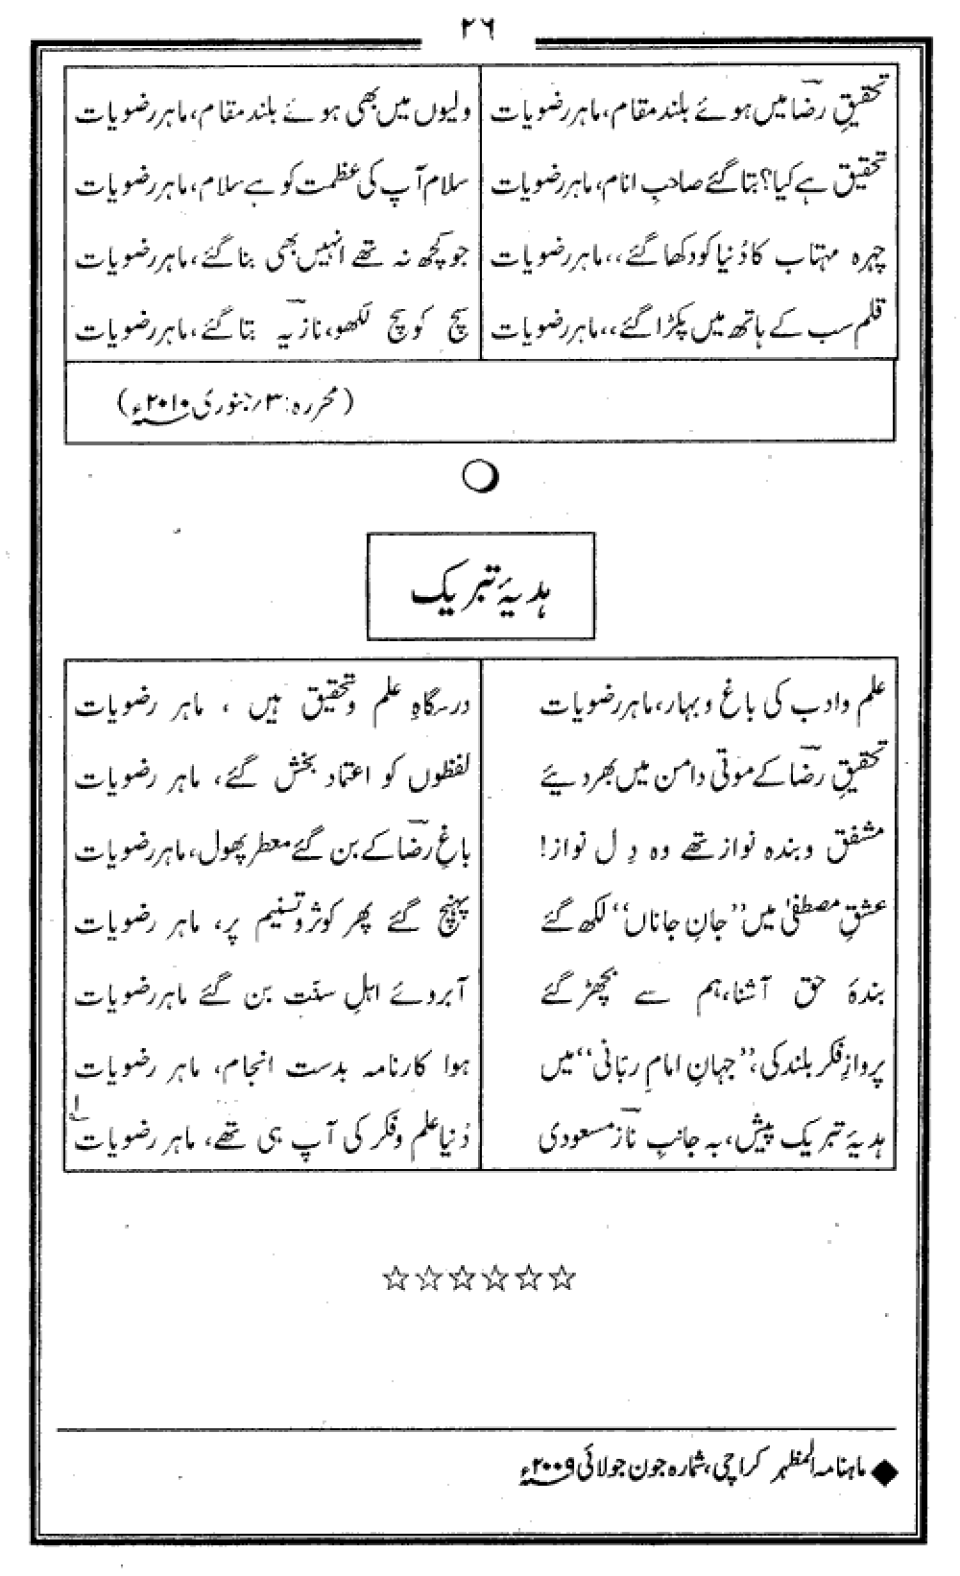 ۲۶
تحقیقِ رضاؔ میں ہوئے بلند مقام، ماہر رضویات ولیوں میں بھی ہوئے بلند مقام، ماہر رضویات
تحقیق ہے کیا؟ بتا گئے صاحبِ انام، ماہر رضویات سلام آپ کی عظمت کو ہے سلام، ماہر رضویات
چہرہ مہتاب کا دُنیا کو دکھا گئے،، ماہر رضویات جو کچھ نہ تھے انہیں بھی بنا گئے، ماہر رضویات
قلم سب کے ہاتھ میں پکڑا گئے،، ماہر رضویات سچ کو سچ لکھو، نازؔ یہ بتا گئے، ماہر رضویات
(محررہ: ۳؍جنوری ۲۰۱۰ء)
ہدیۂ تبریک
علم و ادب کی باغ و بہار، ماہر رضویات درسگاہِ علم و تحقیق ہیں ، ماہر رضویات
تحقیقِ رضاؔ کے موتی دامن میں بھر دیئے لفظوں کو اعتماد بخش گئے، ماہر رضویات
مشفق و بندہ نواز تھے وہ دِل نواز! باغِ رضاؔ کے بن گئے معطر پھول، ماہر رضویات
عشقِ مصطفیٰ میں ’’جانِ جاناں‘‘ لکھ گئے پہنچ گئے پھر کوثر و تسنیم پر، ماہر رضویات
بندہ حق آشنا، ہم سے بچھڑ گئے آبروئے اہلِ سنّت بن گئے ماہر رضویات
پروازِ فکر بلند کی، ’’جہانِ امامِ ربّانی‘‘ میں ہوا کارنامہ بدست انجام، ماہر رضویات
ہدیۂ تبریک پیش، بہ جانبِ نازؔ مسعودی دُنیا علم و فکر کی آپ ہی تھے، ماہر رضویات ۱؎
☆☆☆☆☆☆
◆ ماہنامہ المظہر کراچی، شمارہ جون جولائی ۲۰۰۹ء